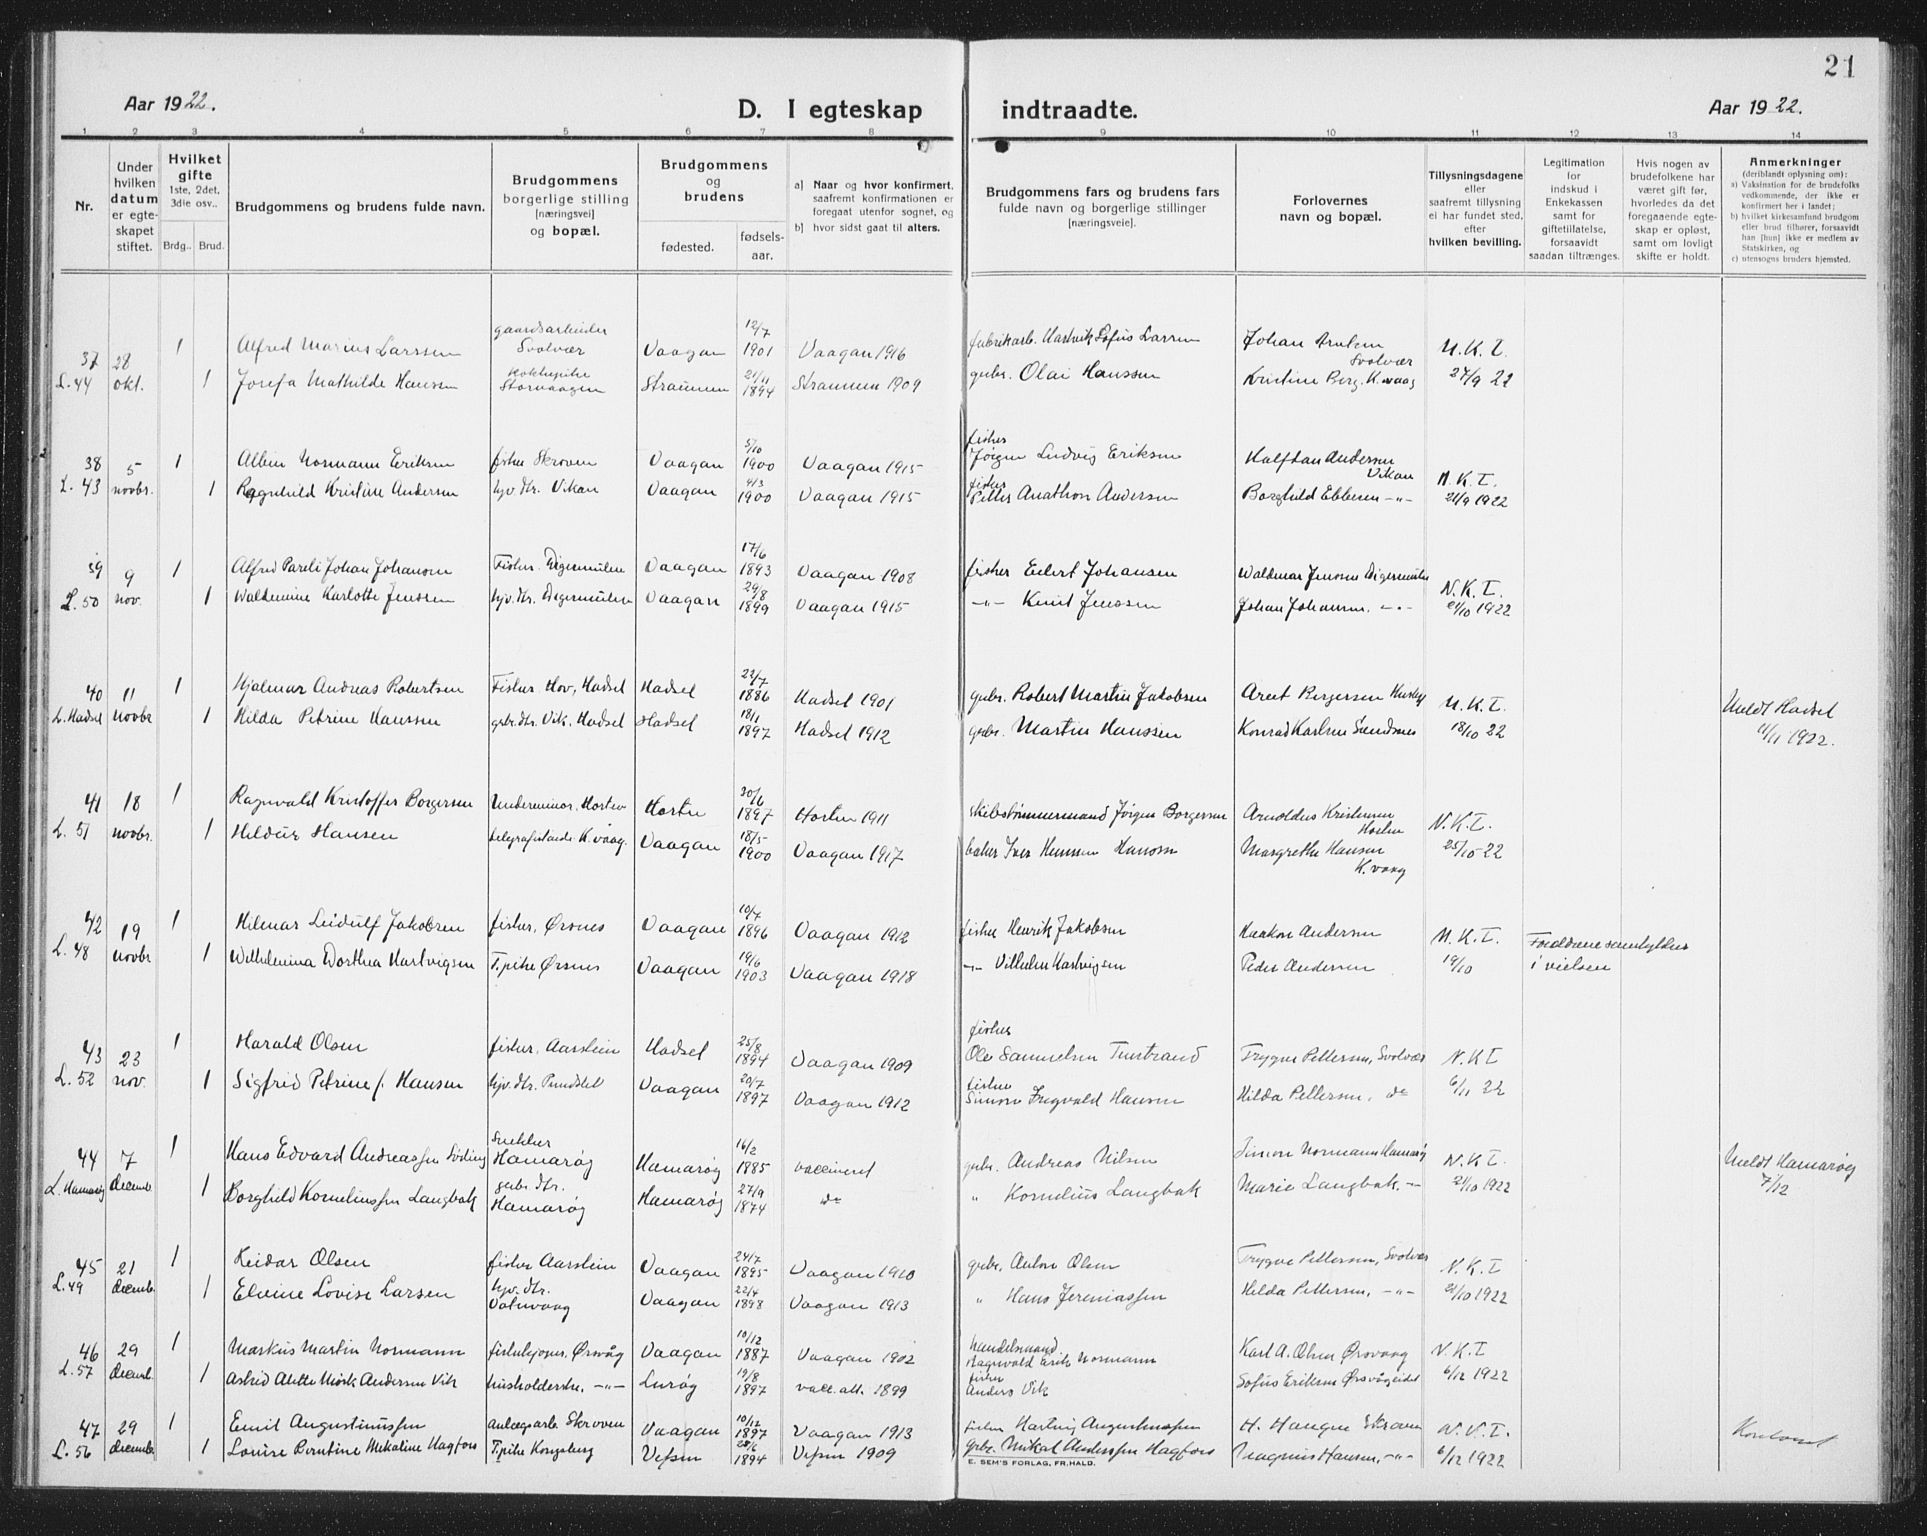 21
Aar 1922.
D. I egteskap indtraadte.
Aar 1922.
1 2 3 4 5 6 7 8 9 10 11 12 13 14
Nr.
Under hvilken datum er egteskapet stiftet.
Hvilket gifte 1ste, 2det, 3die osv..
Brdg.. Brud.
Brudgommens og brudens fulde navn.
Brudgommens borgerlige stilling [næringsvei] og bopæl.
Brudgommens og brudens
fødested.
fødselsaar.
a) Naar og hvor konfirmert, saafremt konfirmationen er foregaat utenfor sognet, og
b) hvor sidst gaat til alters.
Brudgommens fars og brudens fars fulde navn og borgerlige stillinger [næringsveie].
Forlovernes navn og bopæl.
Tillysningsdagene eller saafremt tillysning ei har fundet sted, efter hvilken bevilling.
Legitimation for indskud i Enkekassen samt for giftetillatelse, forsaavidt saadan tiltrænges.
Hvis nogen av brudefolkene har været gift før, hvorledes da det foregaaende egteskap er opløst, samt om lovligt skifte er holdt.
Anmerkninger (deriblandt oplysning om):
a) Vaksination for de brudefolks vedkommende, der ikke er konfirmert her i landet;
b) hvilket kirkesamfund brudgom eller brud tilhører, forsaavidt han [hun] ikke er medlem av Statskirken, og
c) utensogns bruders hjemsted.
37 28 1 Alfred Marius Larssen gaardsarbeider Svolvær Vaagan 12/7 1901 Vaagan 1916 fabrikarb. Hartvik Sofus Larsen Johan Svolvær N.K.T.
L. 44 okt. 1 Josefa Mathilde Hansen kokkepike Storvaagen Straumen 21/11 1894 Straumen 1909 gbr. Olai Hanssen Kristine Berg, K.vaag 27/9 22
38 5 1 Albin Normann Eriksen fisker Skroven Vaagan 5/10 1900 Vaagan 1915 fisker Jørgen Ludvig Eriksen Halfdan Andersen Vikan N.K.T.
L. 43 novbr. 1 Ragnhild Kristine Andersen hjv. dtr. Vikan Vaagan 4/3 1900 Vaagan 1915 fisker Petter Anathon Andersen Borghild Ebbesen -"- 21/9 1922
39 9 1 Alfred Pareli Johan Johansen Fisker. Digermulen Vaagan 17/6 1893 Vaagan 1908 fisker Edert Johansen Waldemar Jenssen Digermulen N.K.T.
L. 50 nov. 1 Waldemine Karlotte Jenssen hjv. dtr. Digermulen Vaagan 29/8 1899 Vaagan 1915 -"- Knut Jenssen Johan Johansen. -"- 21/10 1922
40 11 1 Hjalmar Andreas Robertsen Fisker. Hov, Hadsel Hadsel 22/7 1886 Hadsel 1901 gbr. Robert Martin Jakobsen Areet Borgersen N.K.T.
L. Hadsel novbr 1 Hilda Petrine Hanssen gbr. dtr. Vik, Hadsel Hadsel 18/1 1897 Hadsel 1912 gbr. Martin Hanssen Konrad Karlsen Sandnes 18/10 22
Meldt Hadsel 11/11 1922.
41 18 1 Ragnvald Kristoffer Borgersen Underminør. Horten Horten 30/6 1897 Horten 1911 skibstømmermand Jørgen Borgersen Arnoldus Kristensen N.K.T.
L. 51 novbr. 1 Hildur Hansen telegrafistinde K.vaag. Vaagan 18/5 1900 Vaagan 1917 baker Iver Hansen Margrethe Hansen K.vaag 25/10-22
42 19 1 Hilmar Leidulf Jakobsen fisker, Ørsnes Vaagan 10/7 1896 Vaagan 1912 fisker Henrik Jakobsen Haakon Andersen N.K.T. Forældrene samtykker
L. 48 novbr 1 Wilhelmina Dorthea Hartvigsen T.pike Ørsnes Vaagan 19/6 1903 Vaagan 1918 -"- Vilhelm Hartvigsen Peder Andersen 19/10 i vielsen
43 23 1 Harald Olsen fisker, Aarstein Hadsel 25/8 1894 Vaagan 1909 fisker Ole Samuelsen Tinstrand Trygve Pettersen, Svolvær N.K.T
L. 52 nov. 1 Sigfrid Petrine f. Hansen hjv. dtr. Pundslet Vaagan 20/7 1897 Vaagan 1912 fisker Simon Ingvald Hansen Hilda Pettersen, do 6/11 22
44 7 1 Hans Edvard Andreassen Snekker Hamarøy Hamarøy 16/2 1885 vaccineret gbr. Andreas Nilsen Simon Normann Hamarøy N.K.T.
L. Hamarøy decemb. 1 Borghild Kornelinssen Langbak gbr. dtr. Hamarøy Hamarøy 27/9 1874 do " Kornelius Langbak Marie Langbak, -"- 21/10 1922
Meldt Hamarøy 7/12
45 21 1 Leidar Olsen fisker Aarstein Vaagan 24/7 1895 Vaagan 1910 gbr. Anton Olsen Trygve Pettersen, Svolvær N.K.T
L. 49 decemb. 1 Elvine Lovise Larsen hjv. dtr. Vatnvaag Vaagan 22/4 1898 Vaagan 1913 " Hans Jeremiassen Hilda Pettersen, -"- 21/10 1922
46 29 1 Markus Martin Normann fiskekjøper, Ørsvåg Vaagan 10/12 1887 Vaagan 1902 Handelsmand. Ragnvald Erik Normann Karl A. Olsen Ørsvaag N.K.T
L. 57 decemb. 1 Astrid Alette Mørk Andersen Vik husholderske, -"- Lurøy 19/8 1897 vacc. att. 1899 fisker Anders Vik Sofus Eriksen Ørsvågeidet 6/12 1922
47 29 1 Emil Augustinussen anlægsarb. Skroven Vaagan 10/12 1897 Vaagan 1913 fisker Hartvig Augustinussen H. Haugen Skroven N.K.T.
L. 56 decemb. 1 Louise Berntine Mekaline Hagfors T.pike Kongsberg Vefsen 28/6 1894 Vefsn 1909 gbr. Mikal Anderssen Hagfors Magnus Hansen, -"- 6/12 1922
E. SEM'S FORLAG, FR.HALD.